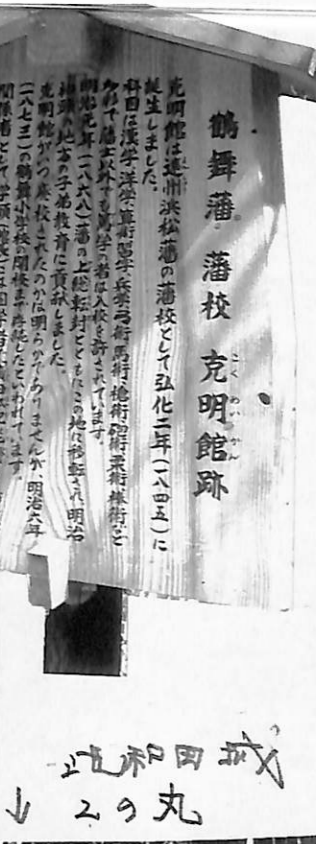 鶴舞藩 藩校 克明館跡
こくめいかん
克明館は遠州浜松藩の藩校として弘化二年(一八四五)に
誕生しました。
科目は漢学、洋学、算術、習字、兵学、弓術、馬術、槍術、剣術、柔術、棒術など
多彩で藩士以外でも篤学の者は入校を許されています。
明治元年(一八六八)藩の上総転封とともにこの地に移転され、明治
初頭の地方の子弟教育に貢献しました。
克明館がいつ廃校されたのかは明らかでありませんが、明治六年
(一八七三)の鶴舞小学校の開校まで存続したといわれています。
関係者として、学頭
和田城
↓ 2の丸